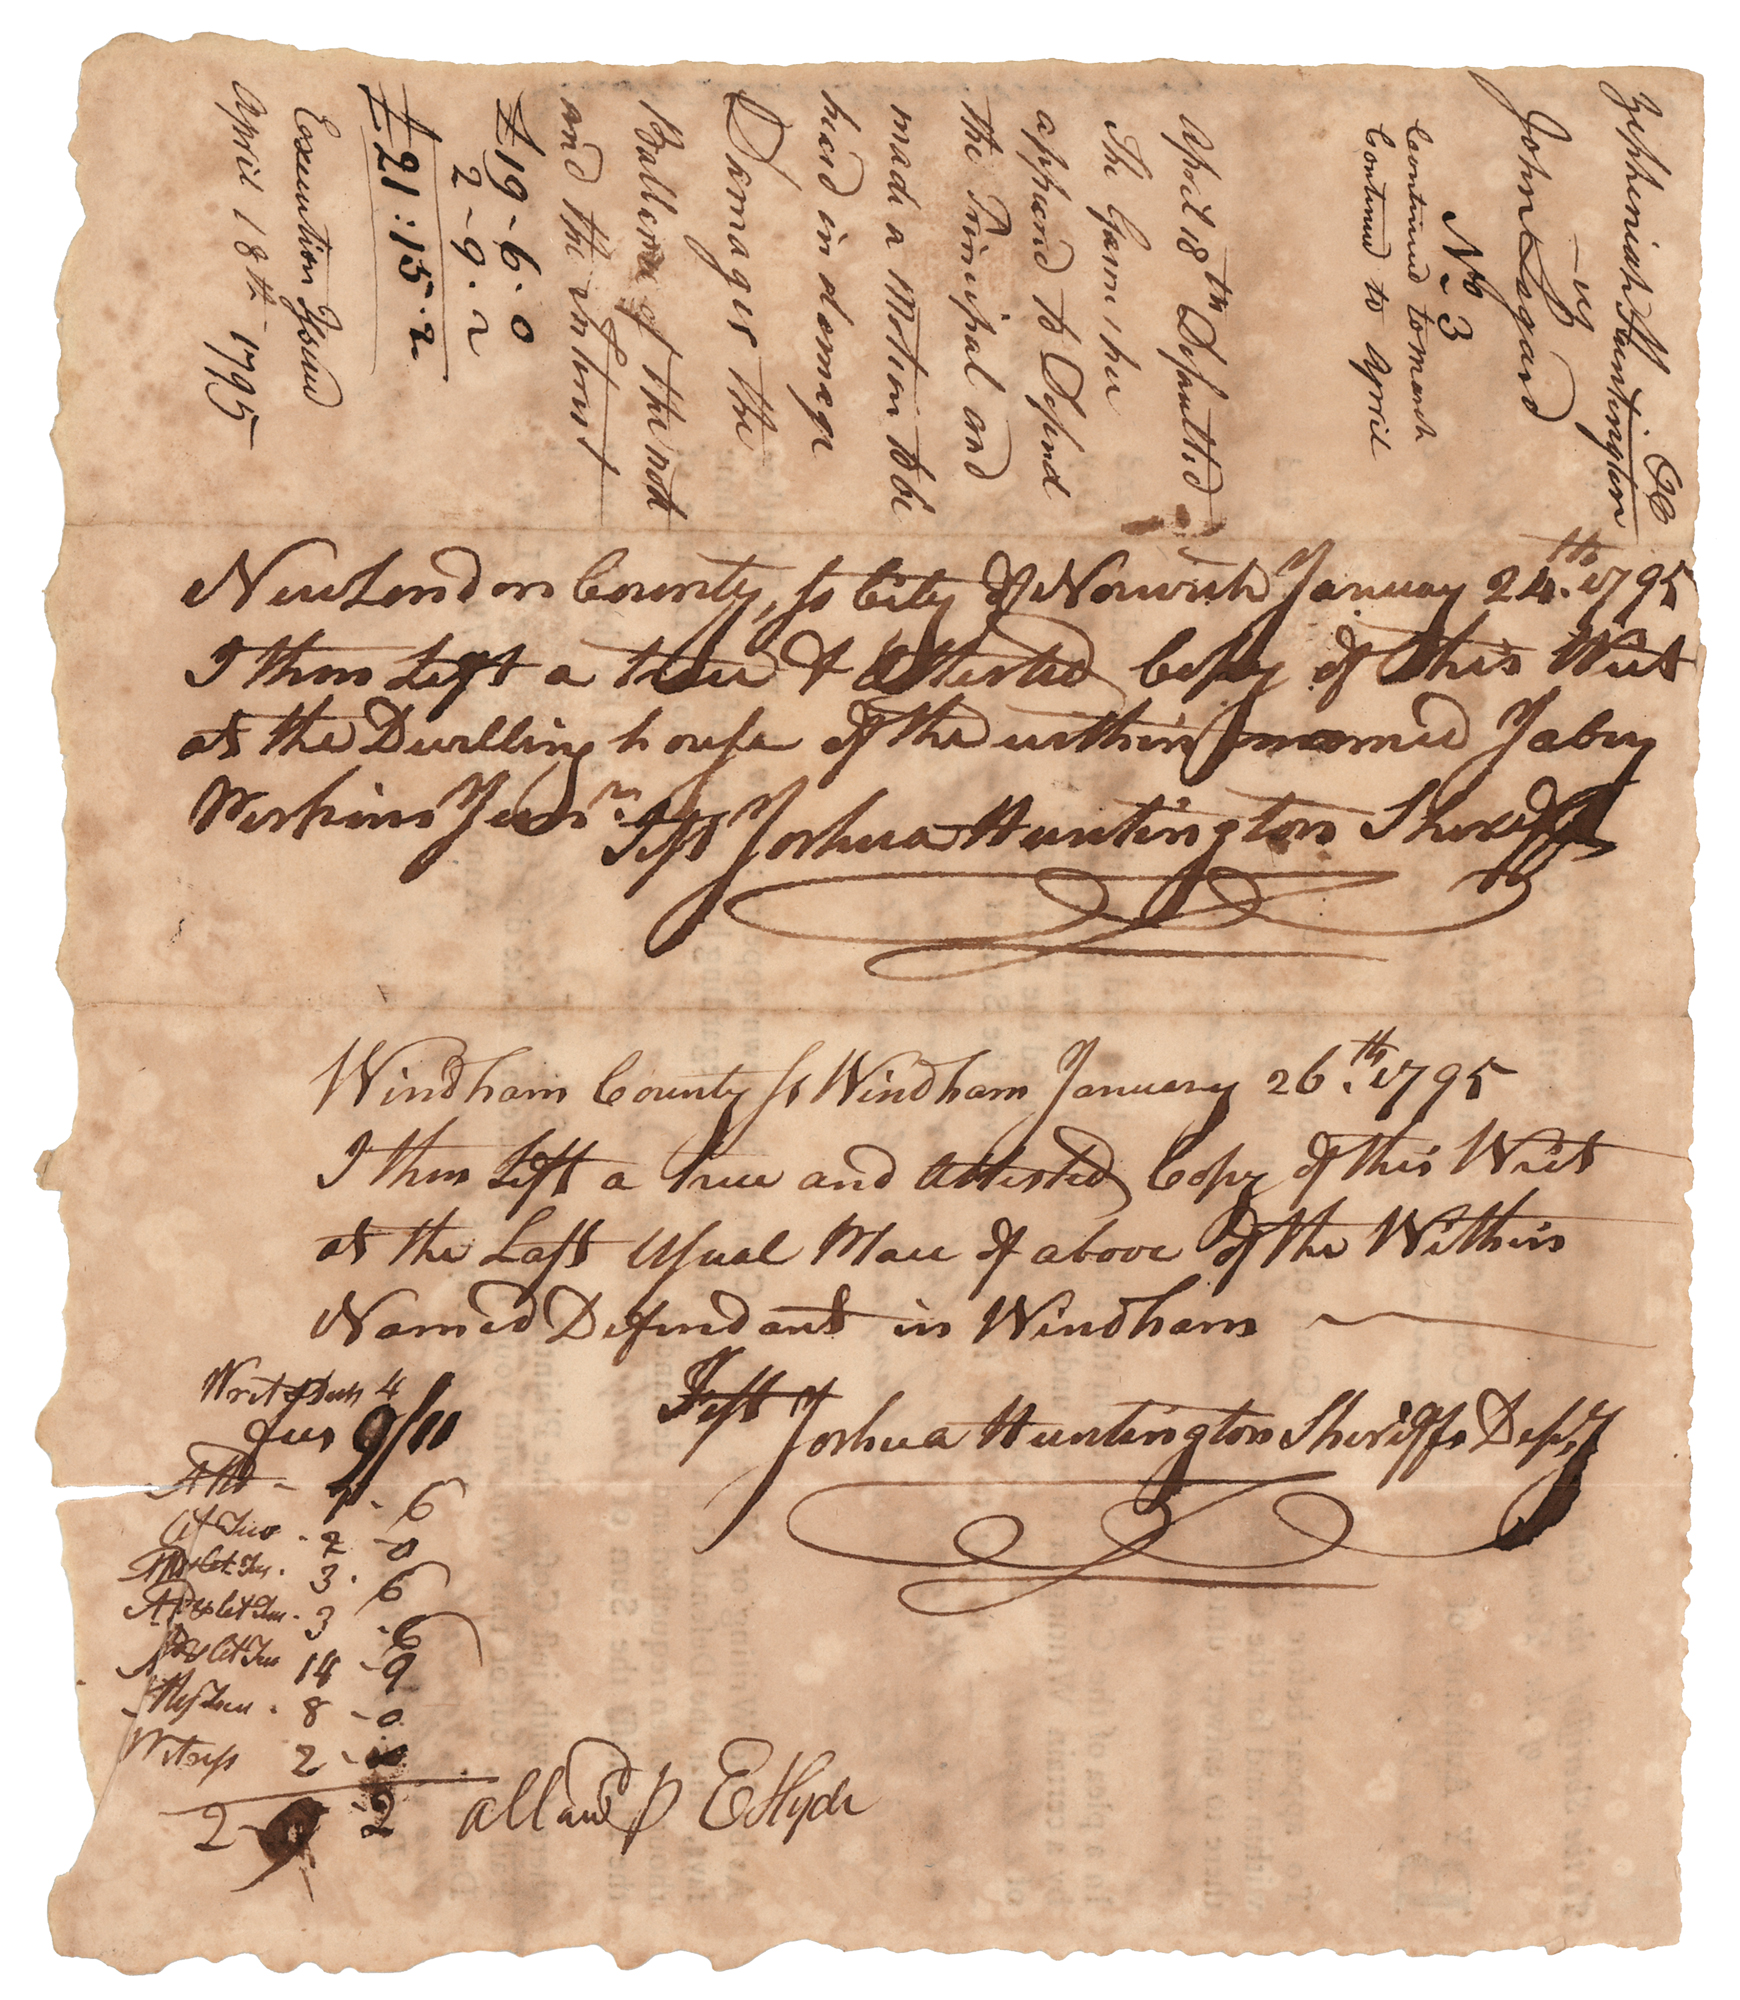 Zepheniah Huntington Esq
- vs
John Legard
No 3
Continued to march
Continued to April
April 18th Defaulted
The Garnishee
appeard to Defend
the Principal and
made a Motion to be
heard in damage
Damages the
Ballance of the note
and the intrest
£19 - 6 - 0
2 - 9 - 2
£21 : 15 - 2
Execution Issued
April 18th 1795
New London County, ss City of Norwich January 24th. 1795
I then Left a true & Attested Copy of this Writ
at the Dwelling house of the within named Jabez
Perkins Junr. Test Joshua Huntington Sheriffs
Windham County ss Windham January 26th. 1795
I then Left a true and Attested Copy of this Writ
at the Last Usual Place of above of the Within
Named Defendant in Windham
Test Joshua Huntington Sheriffs Depty
Writ & Duty 4
fees 9/11
Atto - - 6
Cot Two - 2 - 0
3 - 6
3 - 6
14 - 9
8 - 0
Witness 2 -
2 - 9 2 allowd p E Hyde